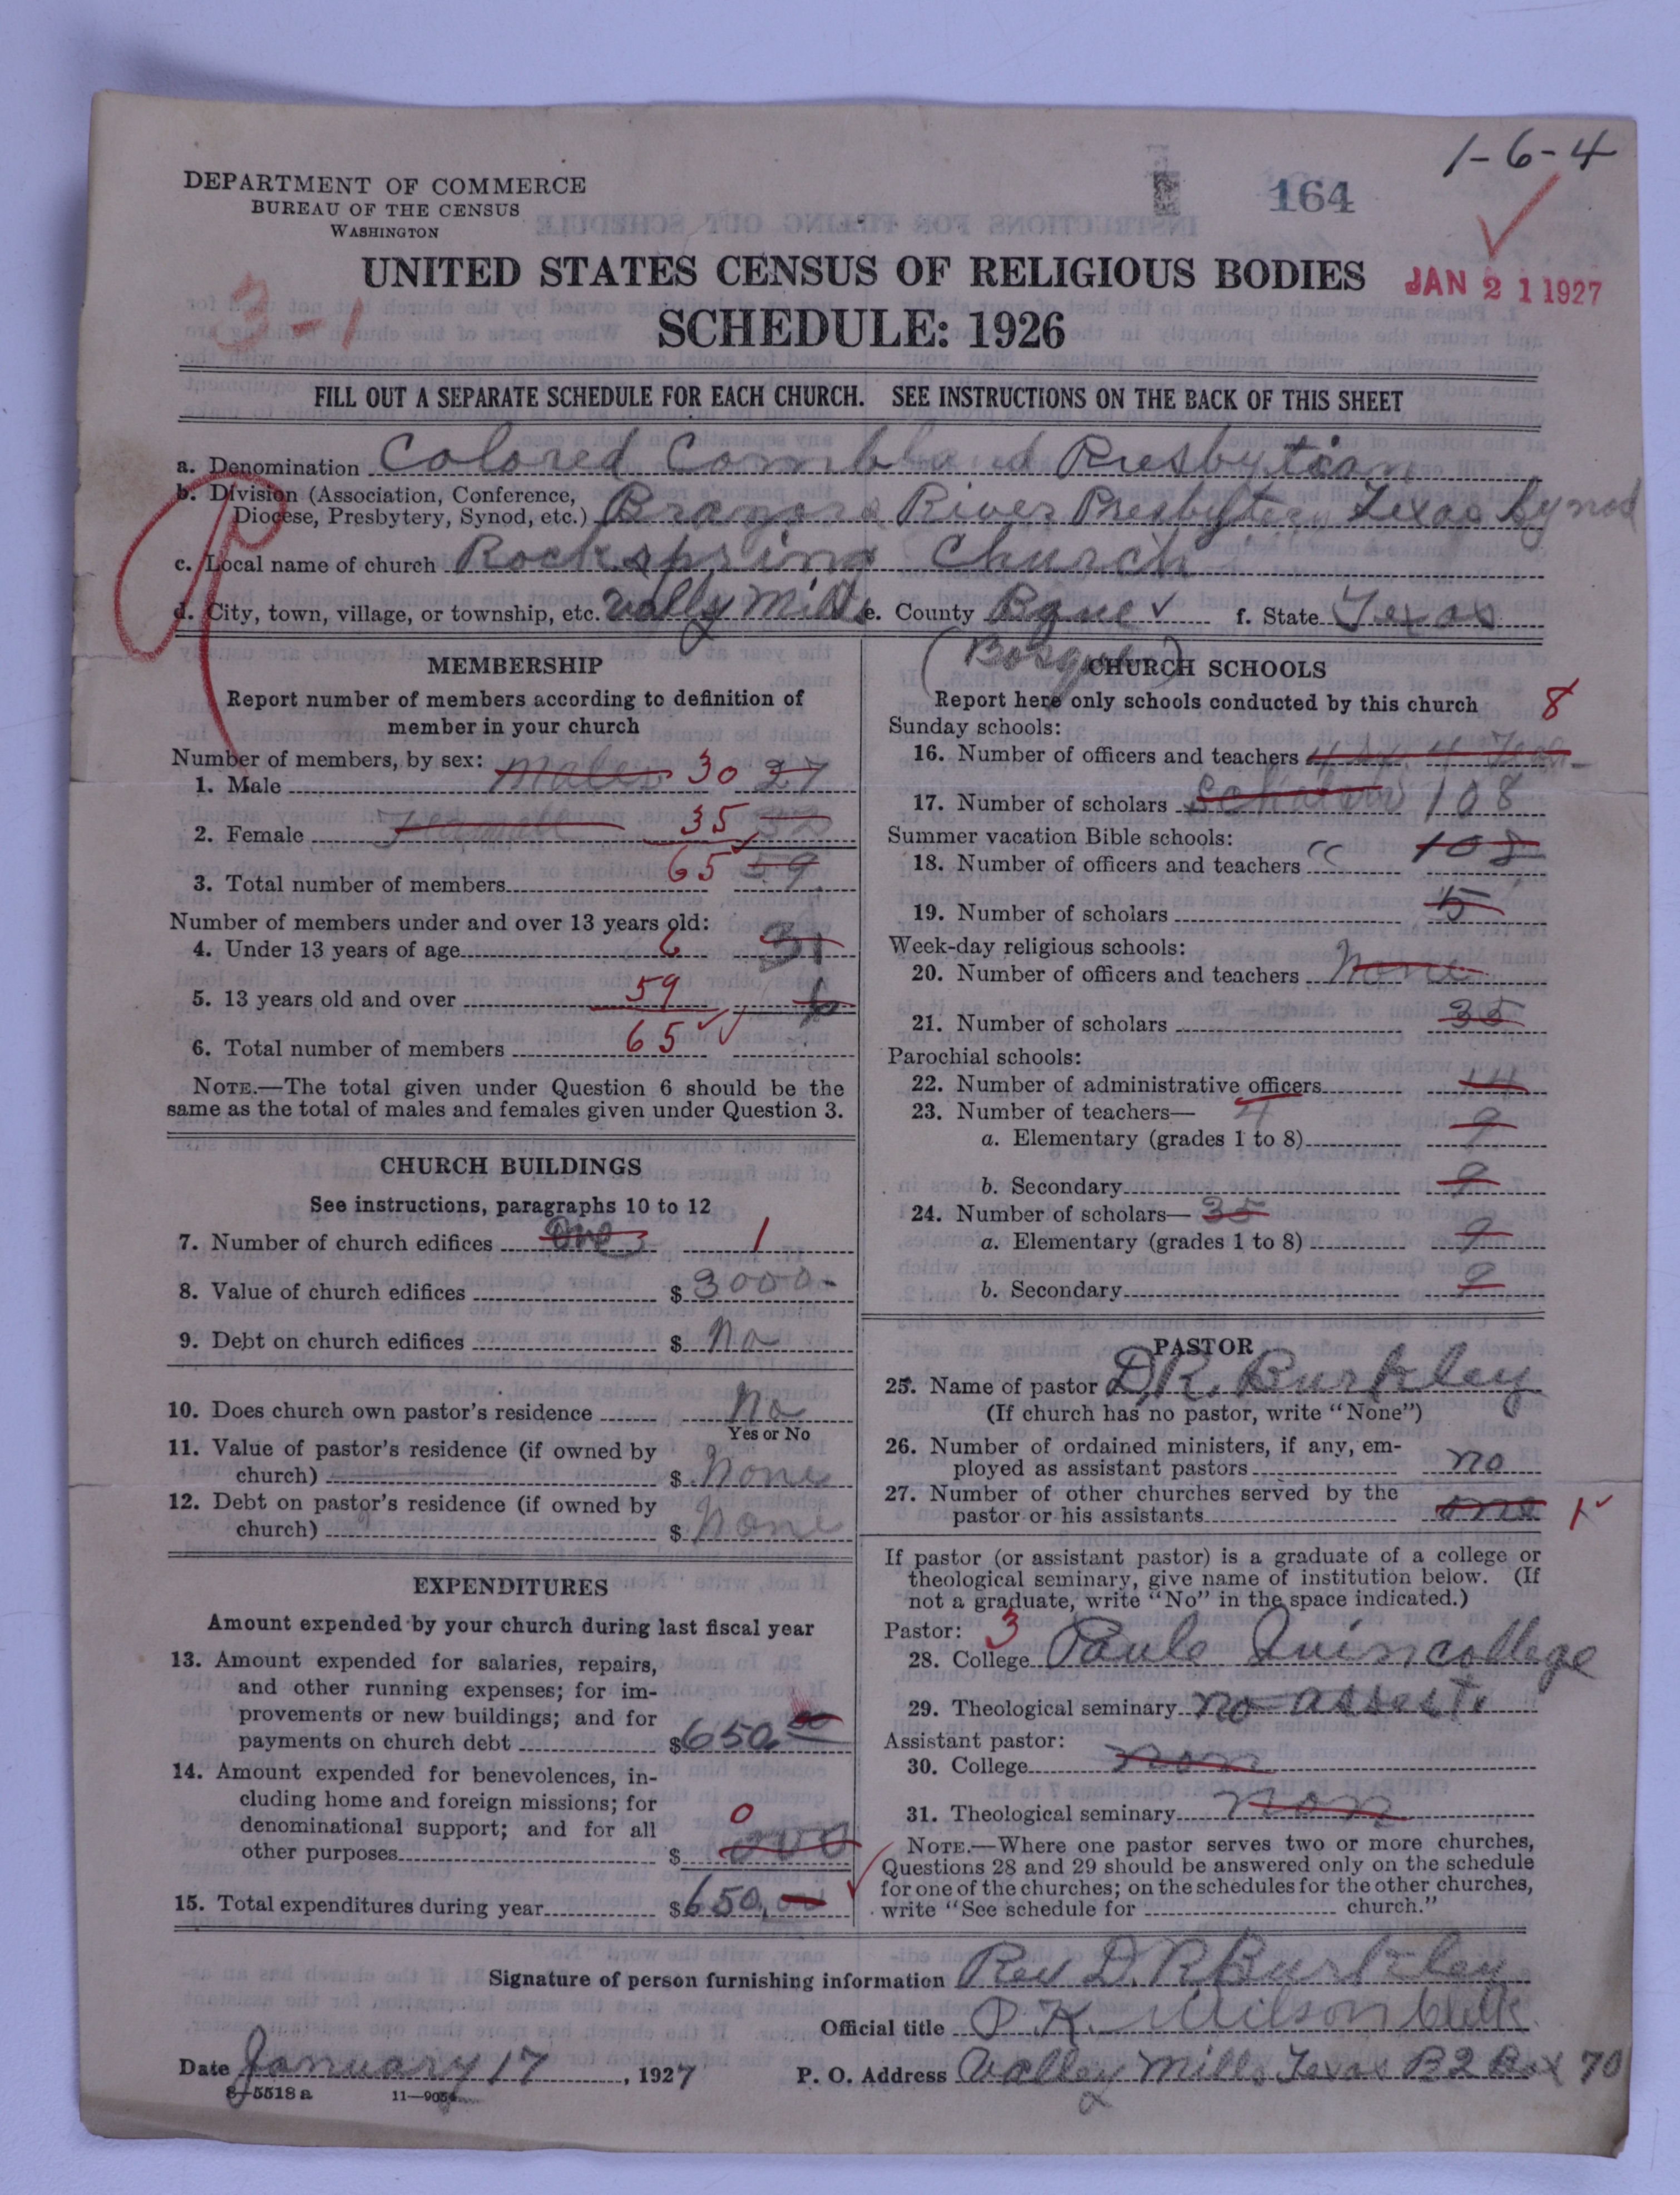 1-6-4
DEPARTMENT OF COMMERCE
BUREAU OF THE CENSUS
WASHINGTON
164
UNITED STATES CENSUS OF RELIGIOUS BODIES
JAN 21 1927
3-1
SCHEDULE: 1926
FILL OUT A SEPARATE SCHEDULE FOR EACH CHURCH. SEE INSTRUCTIONS ON THE BACK OF THIS SHEET
a. Denomination Colored Presbytian
b. Division (Association, Conference,
Diocese, Presbytery, Synod, etc.) River Presbytery Texas Synod
c. Local name of church Rockspring Church
d. City, town, village, or township, etc. Vally Mills e. County f. State Texas
(Bosque)
MEMBERSHIP
Report number of members according to definition of
member in your church
Number of members, by sex:
1. Male males 30 27
2. Female 35 32
65 59
3. Total number of members
Number of members under and over 13 years old:
4. Under 13 years of age 6 31
5. 13 years old and over 59 6
6. Total number of members 65
NOTE.—The total given under Question 6 should be the
same as the total of males and females given under Question 3.
CHURCH BUILDINGS
See instructions, paragraphs 10 to 12
7. Number of church edifices One 1
8. Value of church edifices $ 3000-
9. Debt on church edifices $ no
10. Does church own pastor's residence No
Yes or No
11. Value of pastor's residence (if owned by
church) $ None
12. Debt on pastor's residence (if owned by
church) $ None
EXPENDITURES
Amount expended by your church during last fiscal year
13. Amount expended for salaries, repairs,
and other running expenses; for im-
provements or new buildings; and for
payments on church debt $ 650.00
14. Amount expended for benevolences, in-
cluding home and foreign missions; for
denominational support; and for all
other purposes $ 0 000
15. Total expenditures during year $ 650,00
CHURCH SCHOOLS
Report here only schools conducted by this church 8
Sunday schools:
16. Number of officers and teachers
17. Number of scholars 108
Summer vacation Bible schools:
108
18. Number of officers and teachers
19. Number of scholars 5
Week-day religious schools:
20. Number of officers and teachers None
21. Number of scholars 35
Parochial schools:
22. Number of administrative officers 14
23. Number of teachers— 4
a. Elementary (grades 1 to 8) 9
b. Secondary 9
24. Number of scholars— 35
a. Elementary (grades 1 to 8) 9
b. Secondary
PASTOR
25. Name of pastor D.R. Burkley
(If church has no pastor, write "None")
26. Number of ordained ministers, if any, em-
ployed as assistant pastors no
27. Number of other churches served by the
pastor or his assistants one 1
If pastor (or assistant pastor) is a graduate of a college or
theological seminary, give name of institution below. (If
not a graduate, write "No" in the space indicated.)
Pastor: 3
28. College Paule Quin college
29. Theological seminary no
Assistant pastor:
30. College non
31. Theological seminary non
NOTE.—Where one pastor serves two or more churches,
Questions 28 and 29 should be answered only on the schedule
for one of the churches; on the schedules for the other churches,
write "See schedule for church."
Signature of person furnishing information Rev D. R Burkley
Official title P.K. Wilson Clerk
Date January 17, 1927 P. O. Address Valley Mills Texas R2 Box 70
8-5518 a 11-9054